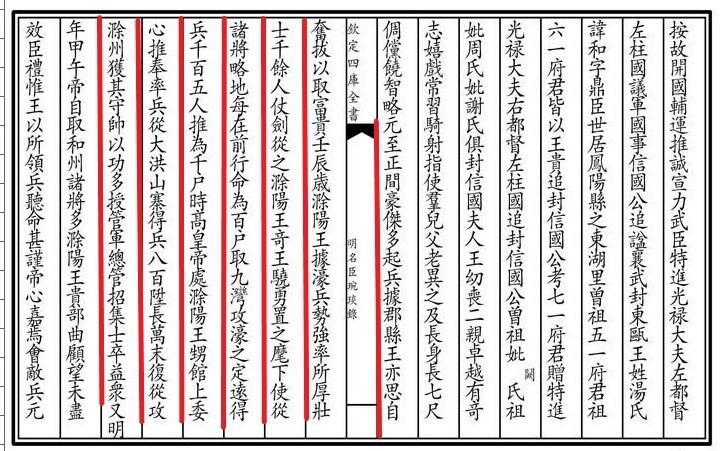 按故開國輔運推誠宣力武臣特進光禄大夫左都督
左柱國議軍國事信國公追諡襄武封東甌王姓湯氏
諱和字鼎臣世居鳳陽縣之東湖里曾祖五一府君祖
六一府君皆以王貴追封信國公考七一府君贈特進
光禄大夫右都督左柱國追封信國公曾祖妣闕氏祖
妣周氏妣謝氏俱封信國夫人王幼喪二親卓越有奇
志嬉戲常習騎射指使羣兒父老異之及長身長七尺
倜儻饒智略元至正間豪傑多起兵據郡縣王亦思自
欽定四庫全書
明名臣琬琰錄
奮拔以取富貴壬辰歲滁陽王據濠兵勢強率所厚壯
士千餘人仗劍從之滁陽王奇王驍勇置之麾下使從
諸將略地每在前行命為百户取九灣攻濠之定遠得
兵千百五人推為千户時高皇帝處滁陽王甥館上委
心推奉率兵從大洪山寨得兵八百陞長萬末復從攻
滁州獲其守帥以功多授管軍總管招集士卒益衆又明
年甲午帝自取和州諸將多滁陽王貴部曲顧望未盡
效臣禮惟王以所領兵聽命甚謹帝心嘉焉會敵兵元